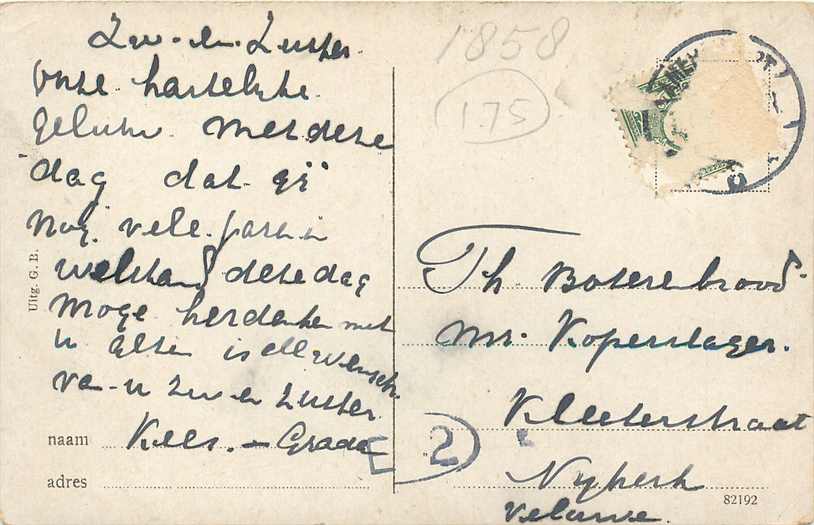 Zw. en Zuster
Onze hartelyke
geluk. met deze
dag dat gÿ
nog vele jaren in
welstand deze dag
moge herdenken met
u is de wensch
van u Zw en Zuster
naam Kees. - Grada
adres
Uitg. G. B.
1858
175
Th. Boterenbrood
Mr. Koperslager.
Kleterstraat
Nykerk
Veluwe.
2
82192